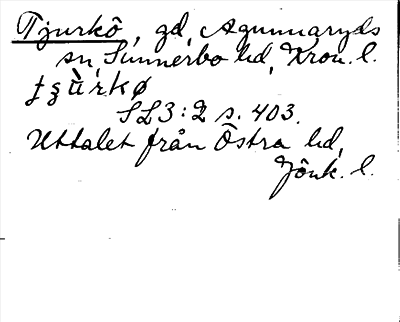 Tjurkö, gd, Agunnaryds
sn, Sunnerbo hd, Kron. l.
SL3:2 s. 403.
Uttalet från Östra hd,
Jönk. l.